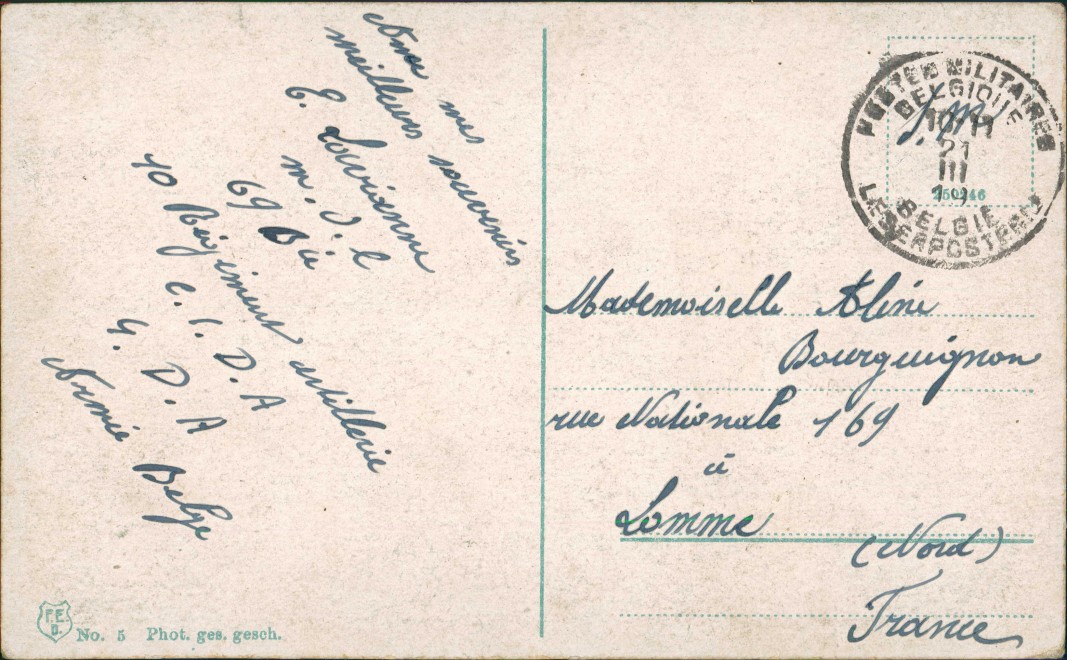 Avec mes
meilleurs souvenirs
m. d. l
69 Bie
10 Régiment artillerie
C. I. D. A
G. D. A
Armée Belge
POSTES MILITAIRES
BELGIQUE
S.M
10-11
21
III
19
250246
BELGIE
LEGERPOSTERIJ
Mademoiselle Aline
Bourguignon
rue Nationale 169
à
Lomme
(Nord)
France
F.E.
D.
No. 5 Phot. ges. gesch.